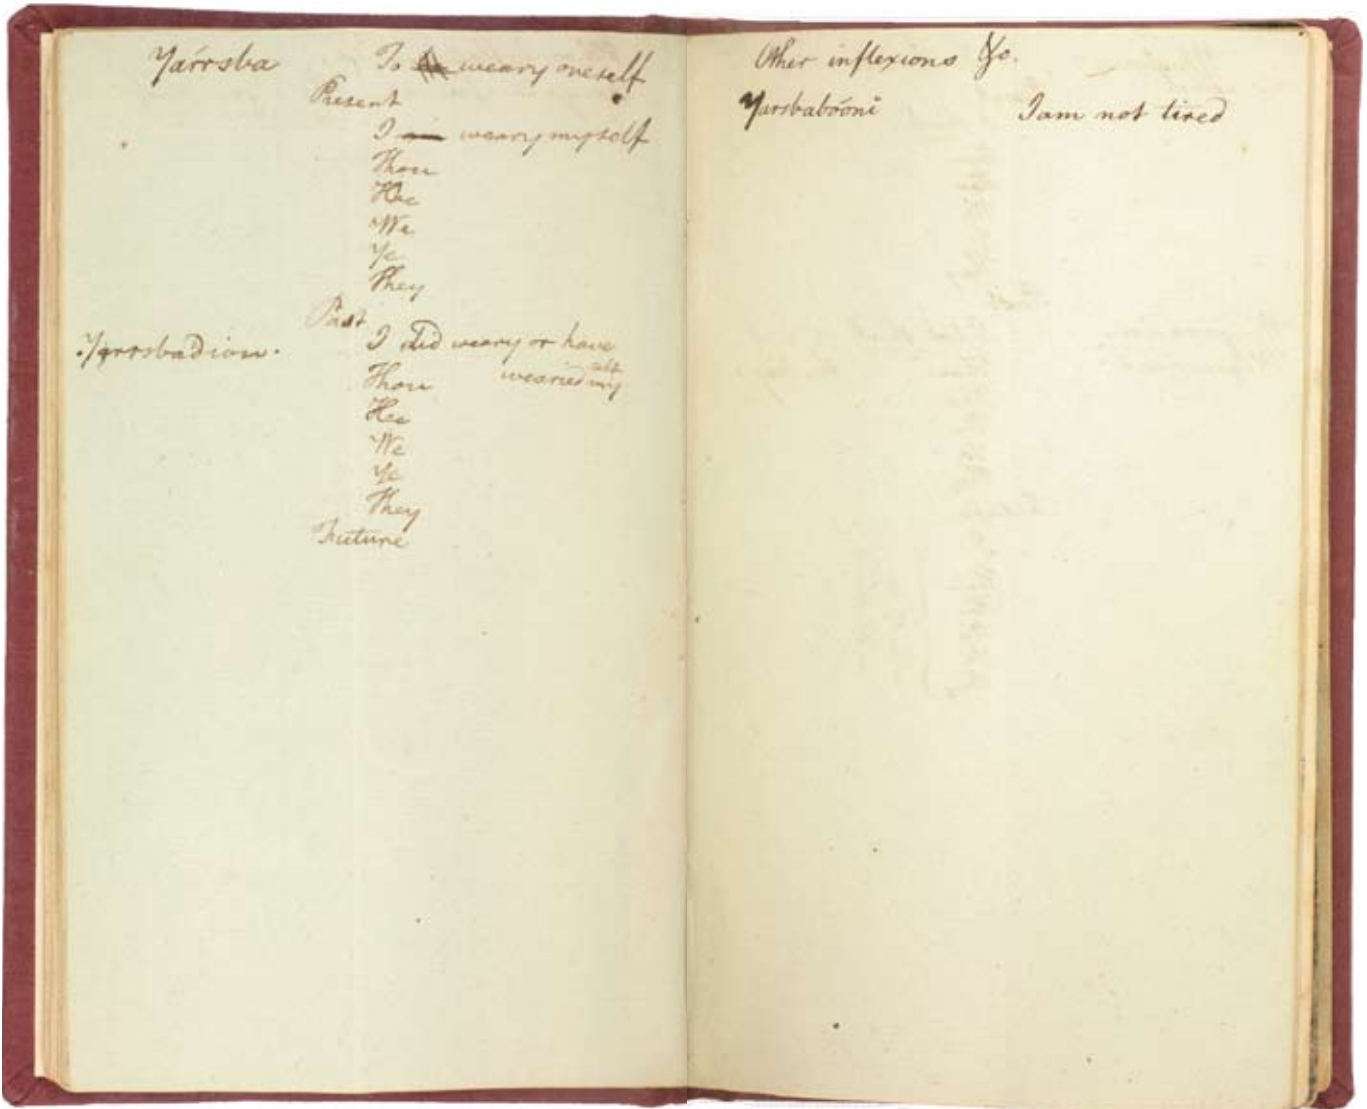 Yárrsba To be weary oneself
Present
I am weary myself
Thou
He
We
Ye
They
Past
Yarrsbadiou. I did weary or have
wearied myself
Thou
He
We
Ye
They
Future
Other inflexions &c.
Yarsbabóoni I am not tired